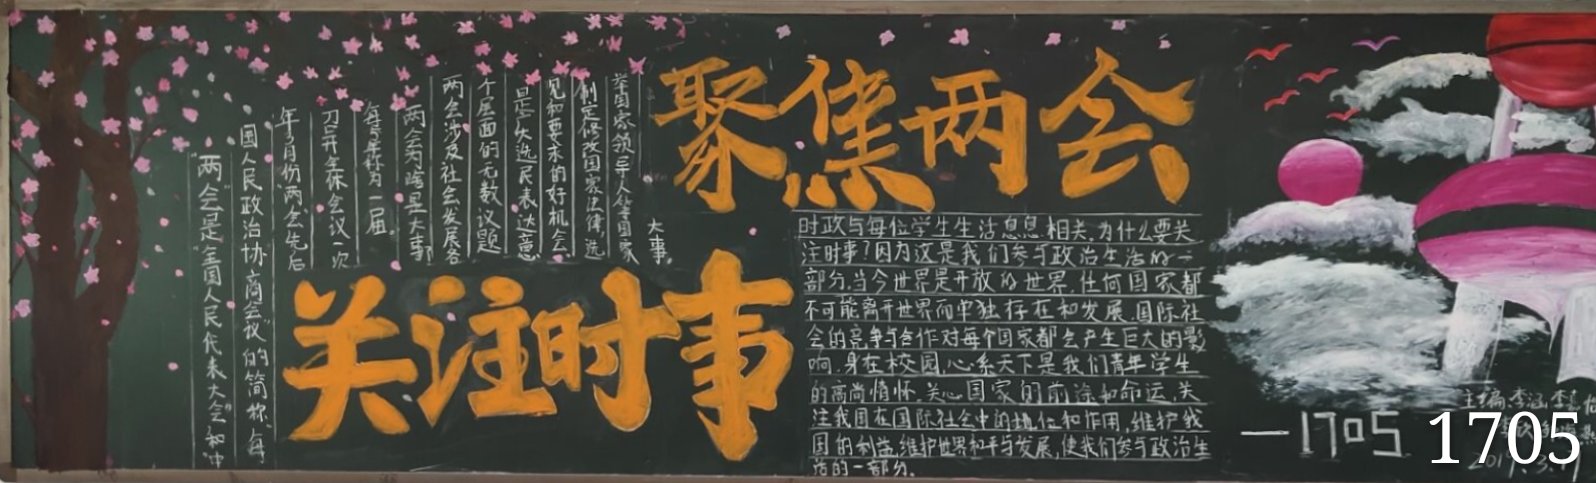 聚焦两会
关注时事
"两会"是"全国人民代表大会"和"中
国人民政治协商会议"的简称.每
年3月份"两会"先后
召开年年会议一次
每5年称为一届.
两会为啥是大事
两会涉及社会发展各
个层面的无数议题
是广大选民表达意
见和要求的好机会
制定修改国家法律,选
举国家领导人等国家
大事。
时政与每位学生生活息息相关.为什么要关
注时事?因为这是我们参与政治生活的一
部分.当今世界是开放的世界.任何国家都
不可能离开世界而单独存在和发展.国际社
会的竞争与合作对每个国家都会产生巨大的影
响.身在校园,心系天下是我们青年学生
的高尚情怀.关心国家的前途和命运,关
注我国在国际社会中的地位和作用,维护我
国的利益,维护世界和平与发展,使我们参与政治生
活的一部分。
主编:李涵
一1705
1705
2019.3.11